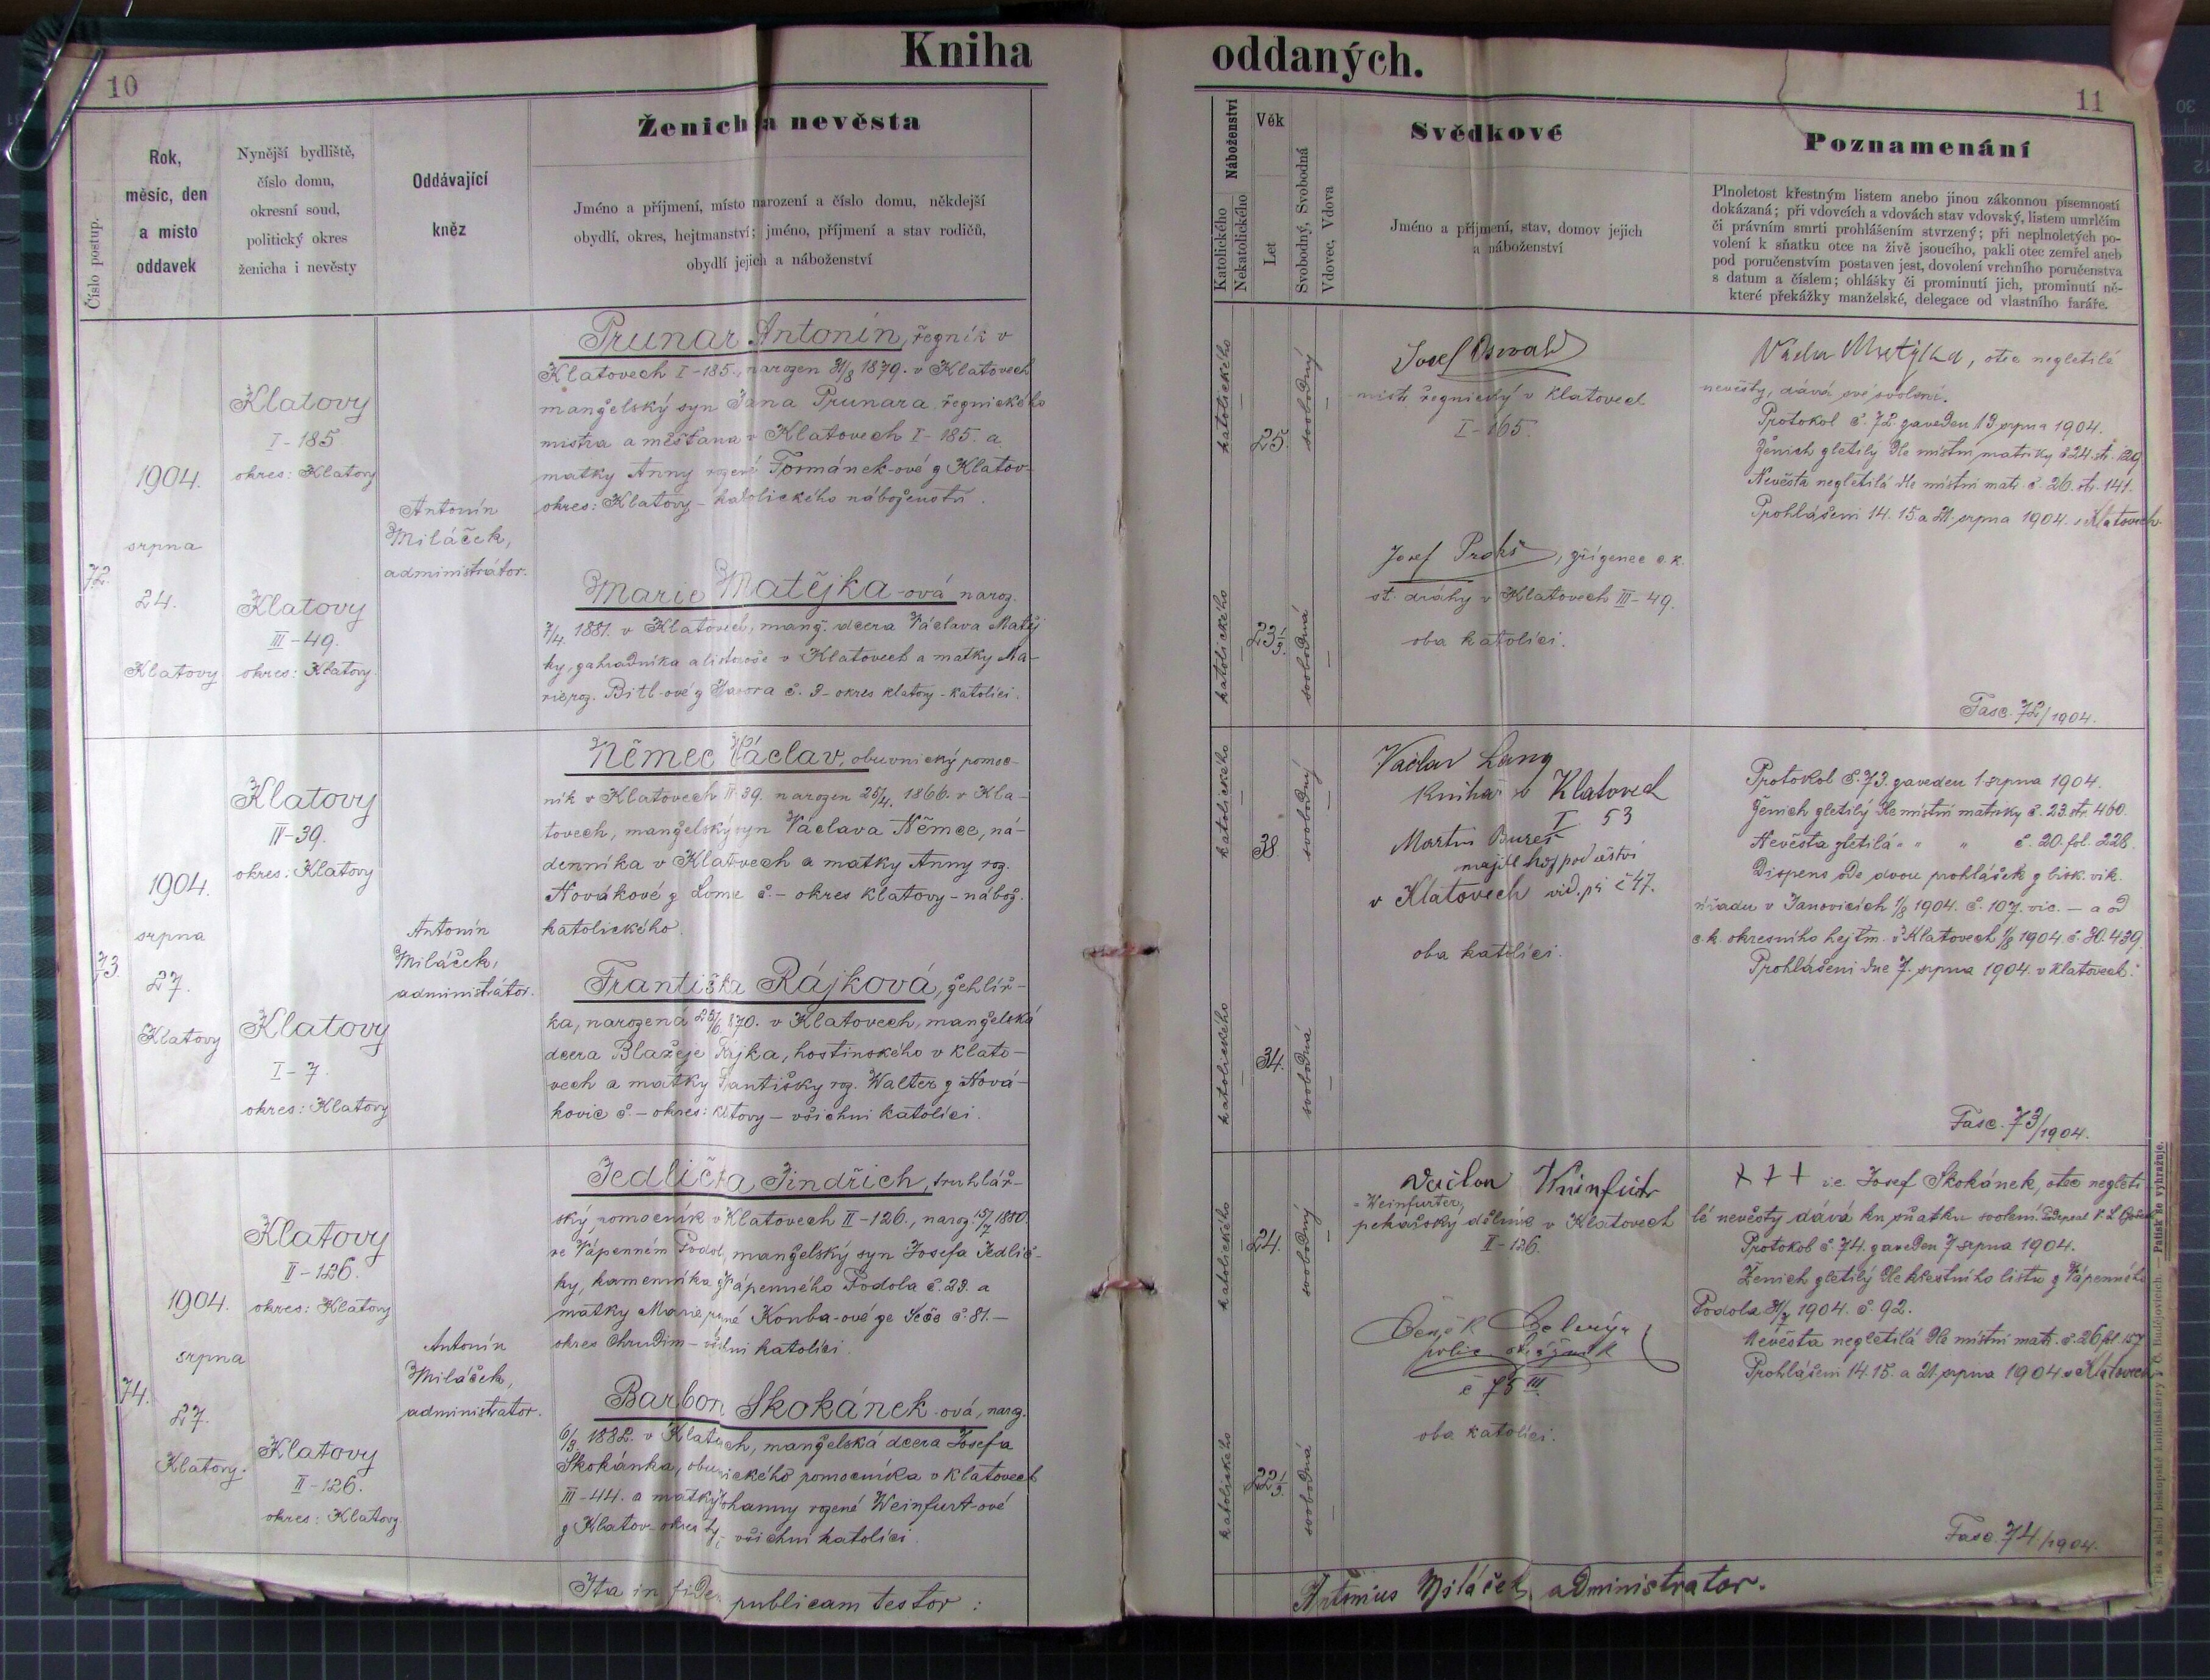 Kniha oddaných.
10
11
Číslo postup.
Rok,
měsíc, den
a místo
oddavek
Nynější bydliště,
číslo domu,
okresní soud,
politický okres
ženicha i nevěsty
Oddávající
kněz
Ženich a nevěsta
Jméno a příjmení, místo narození a číslo domu, někdejší
obydlí, okres, hejtmanství; jméno, příjmení a stav rodičů,
obydlí jejich a náboženství
Náboženství
Katolického
Nekatolického
Věk
Let
Svobodný, Svobodná
Vdovec, Vdova
Svědkové
Jméno a příjmení, stav, domov jejich
a náboženství
Poznamenání
Plnoletost křestným listem anebo jinou zákonnou písemností
dokázaná; při vdovcích a vdovách stav vdovský, listem umrlčím
či právním smrti prohlášením stvrzený; při neplnoletých po-
volení k sňatku otce na živě jsoucího, pakli otec zemřel aneb
pod poručenstvím postaven jest, dovolení vrchního poručenstva
s datum a číslem; ohlášky či prominutí jich, prominutí ně-
které překážky manželské, delegace od vlastního faráře.
72.
1904.
srpna
24.
Klatovy
Klatovy
I-185
okres: Klatovy
Klatovy
III-49.
okres: Klatovy.
Antonín
Miláček,
administrátor.
Prunar Antonín, řezník v
Klatovech I-185., narozen 31/8 1879. v Klatovech
manželský syn Jana Prunara, řeznického
mistra a měšťana v Klatovech I-185. a
matky Anny rozené Formánek-ové z Klatov-
okres: Klatovy - katolického náboženství.
Marie Matějka-ová naroz.
7/4. 1881. v Klatovech, manž. dcera Václava Matěj
ky, zahradníka a v Klatovech a matky Ma-
rie roz. Bitl-ové z Javora č. 3 - okres klatovy - katolíci.
katolického
25.
svobodný
katolického
23 1/3.
svobodná
Josef Oswald
mistr řeznický v Klatovech
I-165.
Josef Prokš, zřízenec c.k.
st. dráhy v Klatovech III-49.
oba katolíci.
Matějka, otec nezletilé
nevěsty, dává své svolení.
Protokol č. 72. zaveden 13. srpna 1904.
Ženich zletilý dle místní matriky č 24. str. 129
Nevěsta nezletilá dle místní matr. č. 26. str. 141.
Prohlášeni 14. 15 a 21. srpna 1904. v Klatovech.
Fasc. 72/1904.
73.
1904.
srpna
27.
Klatovy
Klatovy
II-39.
okres: Klatovy
Klatovy
I-7.
okres: Klatovy
Antonín
Miláček,
administrátor.
Němec Václav, obuvnický pomoc-
ník v Klatovech II. 39. narozen 25/4. 1866. v Kla-
tovech, manželský syn Václava Němce, ná-
denníka v Klatovech a matky Anny roz.
Novákové z Lome č. - okres klatovy - nábož.
katolického.
Františka Rájková, žehlíř-
ka, narozená 25/6 870. v Klatovech, manželská
dcera Blažeje Rájka, hostinského v klato-
vech a matky Františky roz. Walter z Nová-
kovic č. - okres: Klatovy - všichni katolíci.
katolického
38.
svobodný
katolického
34.
svobodná
Václav Lang
knihař v Klatovech
I 53
Martin Bureš
majitel hospodářství
v Klatovech vid. při č 47.
oba katolíci.
Protokol č. 73. zaveden 1. srpna 1904.
Ženich zletilý dle místní matriky č. 23. str. 460.
Nevěsta zletilá " " " č. 20. fol. 228.
Dispens ode dvou prohlášek z bisk. vik.
úřadu v Janovicích 1/8 1904. č. 107. vic. - a od
c.k. okresního hejtm. v Klatovech 1/8 1904. č. 30.439.
Prohlášeni dne 7. srpna 1904. v Klatovech.
Fasc. 73/1904.
74.
1904.
srpna
27.
Klatovy.
Klatovy
II-126.
okres: Klatovy
Klatovy
II-126.
okres: Klatovy.
Antonín
Miláček,
administrator.
Jedlička Jindřich, truhlář-
ský pomocník v Klatovech II-126., naroz. 15/7 1880.
ve Vápenném Podol, manželský syn Josefa Jedlič-
ky, kamenníka z Vápenného Podola č. 29. a
matky Marie rozené Konba-ové ze Seče č. 81. -
okres Chrudim - všichni katolíci.
Barbora Skokánek-ová, naroz.
6/3 1882. v Klatovech, manželská dcera Josefa
Skokánka, obuvnického pomocníka v klatovech
III-44. a matky Johanny rozené Weinfurt-ové
z Klatov - okres ty, všichni katolíci.
katolického
24.
svobodný
katolického
22 1/3.
svobodná
Václav
= Weinfurter,
pekařský dělník v Klatovech
II-126.
č 75 III.
oba katolíci.
+ + + Josef Skokánek, otec nezleti-
lé nevěsty dává ku sňatku svolení.
Protokol č. 74. zaveden 7 srpna 1904.
Ženich zletilý dle křestního listu z Vápenného
Podola 31/7 1904. č. 92.
Nevěsta nezletilá dle místní matr. č. 26 fol 157
Prohlášeni 14. 15. a 21. srpna 1904. v Klatovech
Fasc. 74/1904.
Ita in fidem publicam testor:
Antonius Miláček, administrator.
Tisk a sklad biskupské knihtiskárny v Č. Budějovicích. — Patisk se vyhražuje.